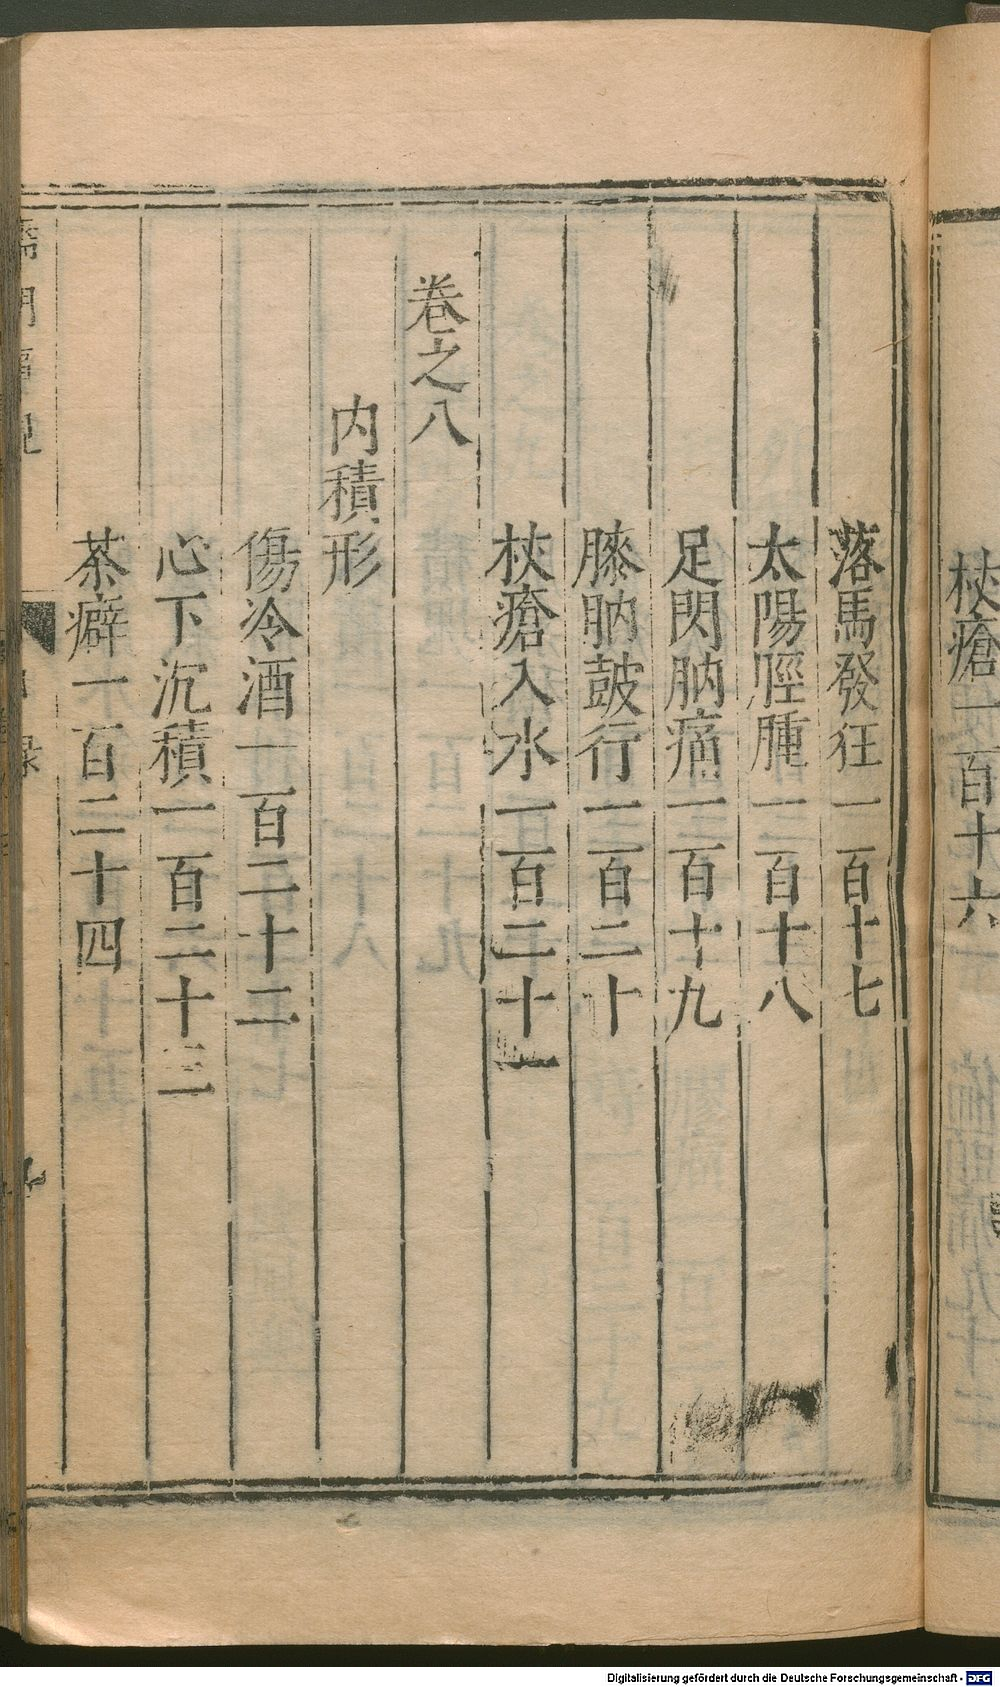 杖瘡一百十六
落馬發狂一百十七
太陽脛腫一百十八
足閃肭痛一百十九
膝肭跛行一百二十
杖瘡入水一百二十一
卷之八
内積形
傷冷酒一百二十二
心下沉積一百二十三
茶癖一百二十四
Digitalisierung gefördert durch die Deutsche Forschungsgemeinschaft - DFG